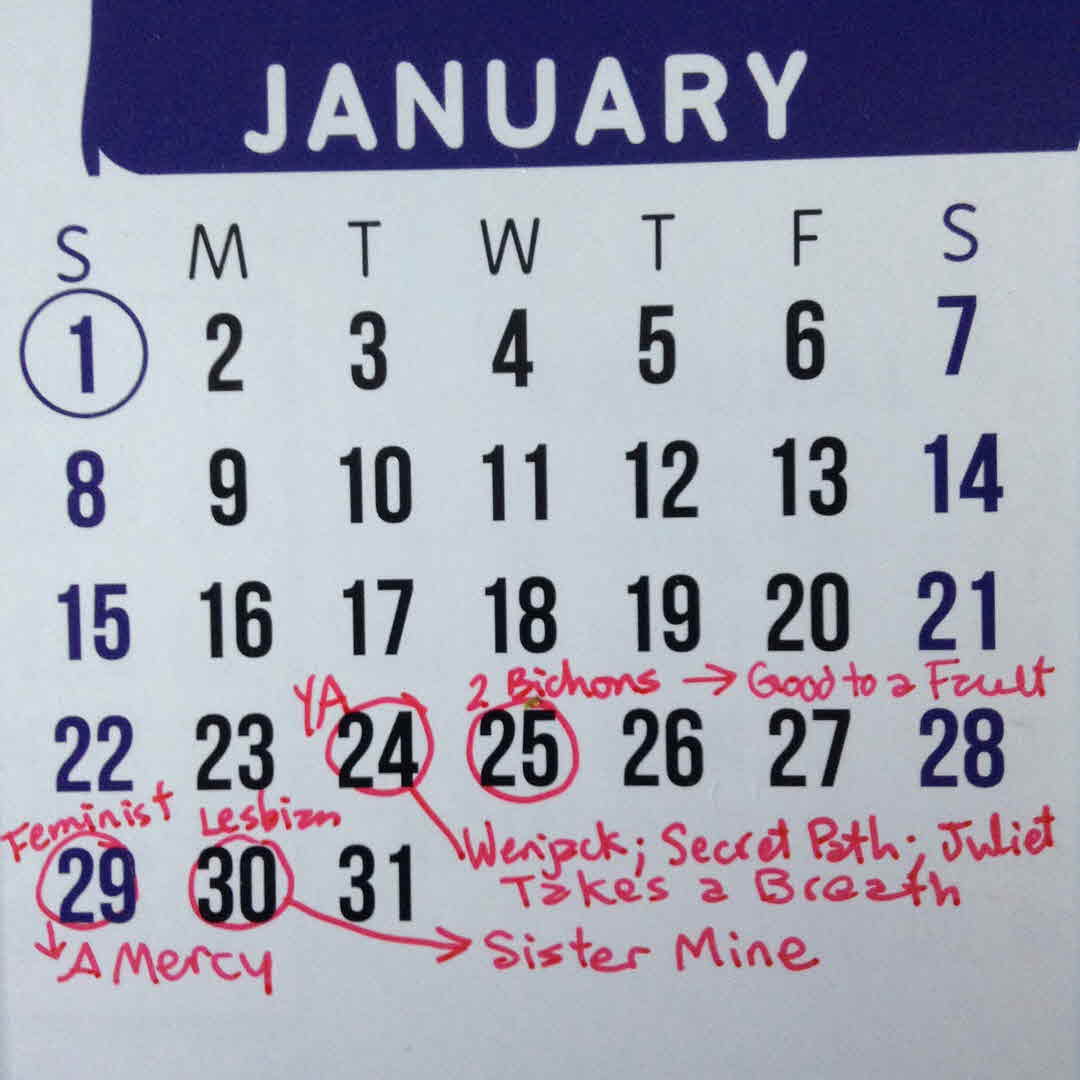 JANUARY
S M T W T F S
1 2 3 4 5 6 7
8 9 10 11 12 13 14
15 16 17 18 19 20 21
YA 2 Bichons → Good to a Fault
22 23 24 25 26 27 28
Feminist Lesbian
Wenjack; Secret Path; Juliet
Takes a Breath
29 30 31
A Mercy
Sister Mine